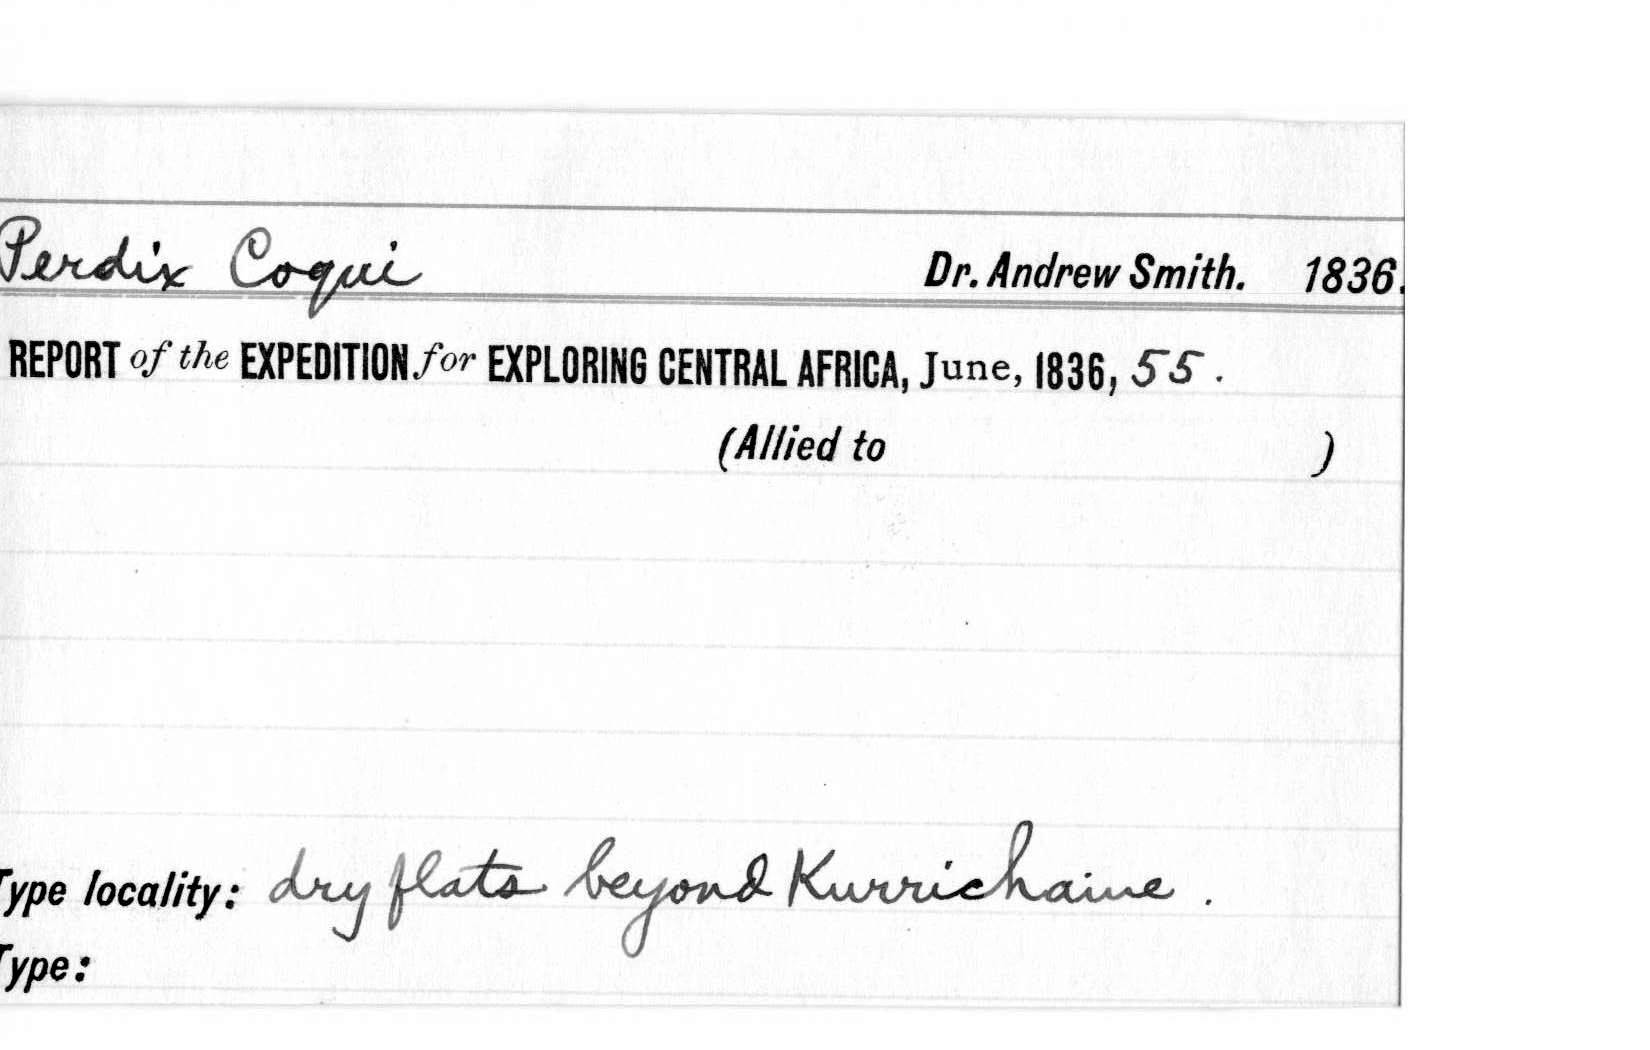 Perdix Coqui Dr. Andrew Smith. 1836.
REPORT of the EXPEDITION for EXPLORING CENTRAL AFRICA, June, 1836, 55.
(Allied to )
Type locality: dry flats beyond Kurrichaine.
Type: